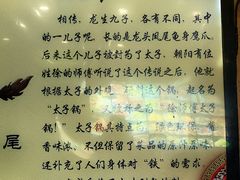 相传,龙生九子,各有不同,其中
的一儿子呢,长的是龙头凤尾龟身鹰爪,
后来这个儿子被封为了太子,朝阳有位
姓徐的师傅听说了这个传说之后,他就
根据太子的外形,研制这个锅,起名为
“太子锅”,又被称之为“徐师傅太子
锅!太子锅其特点为:绿色环保,酱
香味浓,不仅保留了菜品的原汁原味,
还补充了人们身体对“铁”的需求,
尾